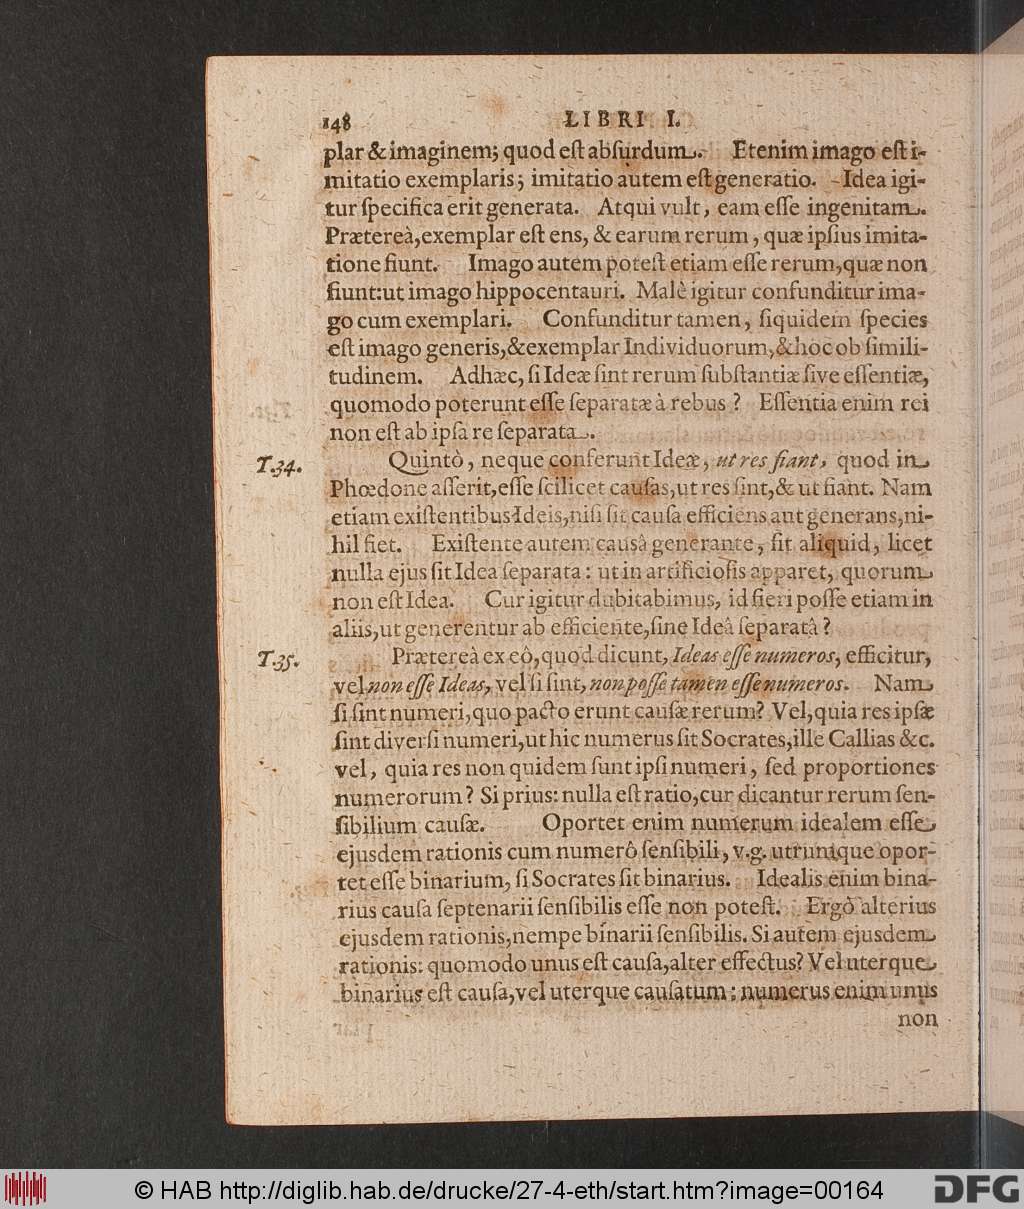 148 LIBRI I.
plar & imaginem; quod eſt abſurdum. Etenim imago eſt i-
mitatio exemplaris; imitatio autem eſt generatio. Idea igi-
tur ſpecifica erit generata. Atqui vult, eam eſſe ingenitam.
Prætereà, exemplar eſt ens, & earum rerum, quæ ipſius imita-
tione fiunt. Imago autem poteſt etiam eſſe rerum, quæ non
fiunt: ut imago hippocentauri. Malè igitur confunditur ima-
go cum exemplari. Confunditur tamen, ſiquidem ſpecies
eſt imago generis, & exemplar Individuorum, & hoc ob ſimili-
tudinem. Adhæc, ſi Ideæ ſint rerum ſubſtantiæ ſive eſſentiæ,
quomodo poterunt eſſe ſeparatæ à rebus? Eſſentia enim rei
non eſt ab ipſa re ſeparata.
T.34. Quintò, neque conferunt Ideæ, ut res fiant, quod in
Phœdone aſſerit, eſſe ſcilicet cauſas, ut res ſint, & ut fiant. Nam
etiam exiſtentibus Ideis, niſi ſit cauſa efficiens aut generans, ni-
hil fiet. Exiſtente autem causâ generante, fit aliquid, licet
nulla ejus ſit Idea ſeparata: ut in artificioſis apparet, quorum
non eſt Idea. Cur igitur dubitabimus, id fieri poſſe etiam in
aliis, ut generentur ab efficiente, ſine Ideâ ſeparatâ?
T.35. Prætereà ex eô, quod dicunt, Ideas eſſe numeros, efficitur,
vel non eſſe Ideas, vel ſi ſint, non poſſe tamen eſſe numeros. Nam
ſi ſint numeri, quo pacto erunt cauſæ rerum? Vel, quia res ipſæ
ſint diverſi numeri, ut hic numerus ſit Socrates, ille Callias &c.
vel, quia res non quidem ſunt ipſi numeri, ſed proportiones
numerorum? Si prius: nulla eſt ratio, cur dicantur rerum ſen-
ſibilium cauſæ. Oportet enim numerum idealem eſſe
ejusdem rationis cum numerô ſenſibili, v.g. utrumque opor-
tet eſſe binarium, ſi Socrates ſit binarius. Idealis enim bina-
rius cauſa ſeptenarii ſenſibilis eſſe non poteſt. Ergò alterius
ejusdem rationis, nempe binarii ſenſibilis. Si autem ejusdem
rationis: quomodo unus eſt cauſa, alter effectus? Vel uterque
binarius eſt cauſa, vel uterque cauſatum: numerus enim unus
non
© HAB http://diglib.hab.de/drucke/27-4-eth/start.htm?image=00164 DFG